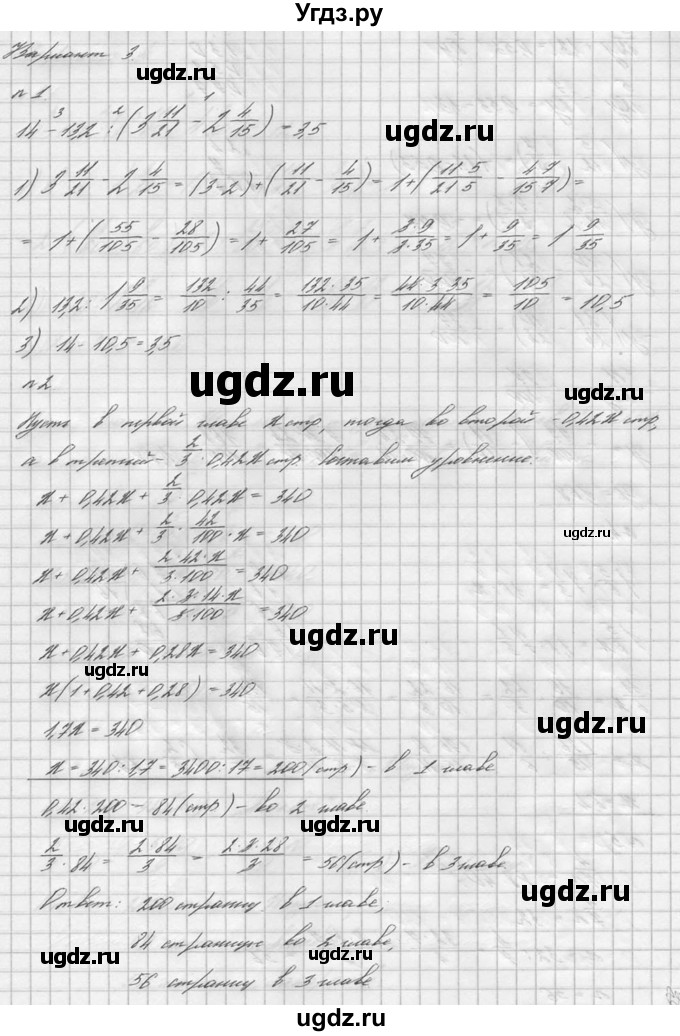 Угдз.ру
Вариант 3.
ugdz.ru
n 1.
14 - 13,2 : (3 11/21 - 2 4/15) = 3,5
1) 3 11/21 - 2 4/15 = (3-2) + (11/21 - 4/15) = 1 + (11·5/21·5 - 4·7/15·7) =
= 1 + (55/105 - 28/105) = 1 + 27/105 = 1 + 3·9/3·35 = 1 + 9/35 = 1 9/35
2) 13,2 : 1 9/35 = 132/10 : 44/35 = 132·35/10·44 = 44·3·35/10·44 = 105/10 = 10,5
3) 14 - 10,5 = 3,5
ugdz.ru
n 2
Пусть в первой главе x стр, тогда во второй - 0,42x стр,
а в третьей - 2/3 · 0,42x стр. Составим уравнение:
x + 0,42x + 2/3 · 0,42x = 340
x + 0,42x + 2/3 · 42/100 · x = 340
ugdz.ru
x + 0,42x + 2·42·x/3·100 = 340
x + 0,42x + 2·3·14·x/3·100 = 340
ugdz.ru
x + 0,42x + 0,28x = 340
ugdz.ru
x(1 + 0,42 + 0,28) = 340
1,7x = 340
ugdz.ru
x = 340 : 1,7 = 3400 : 17 = 200 (стр) - в 1 главе
0,42 · 200 - 84 (стр) - во 2 главе
ugdz.ru
2/3 · 84 = 2·84/3 = 2·3·28/3 = 56 (стр) - в 3 главе
Ответ: 200 страниц в 1 главе;
ugdz.ru
84 страницы во 2 главе,
ugdz.ru
56 страниц в 3 главе
ugdz.ru